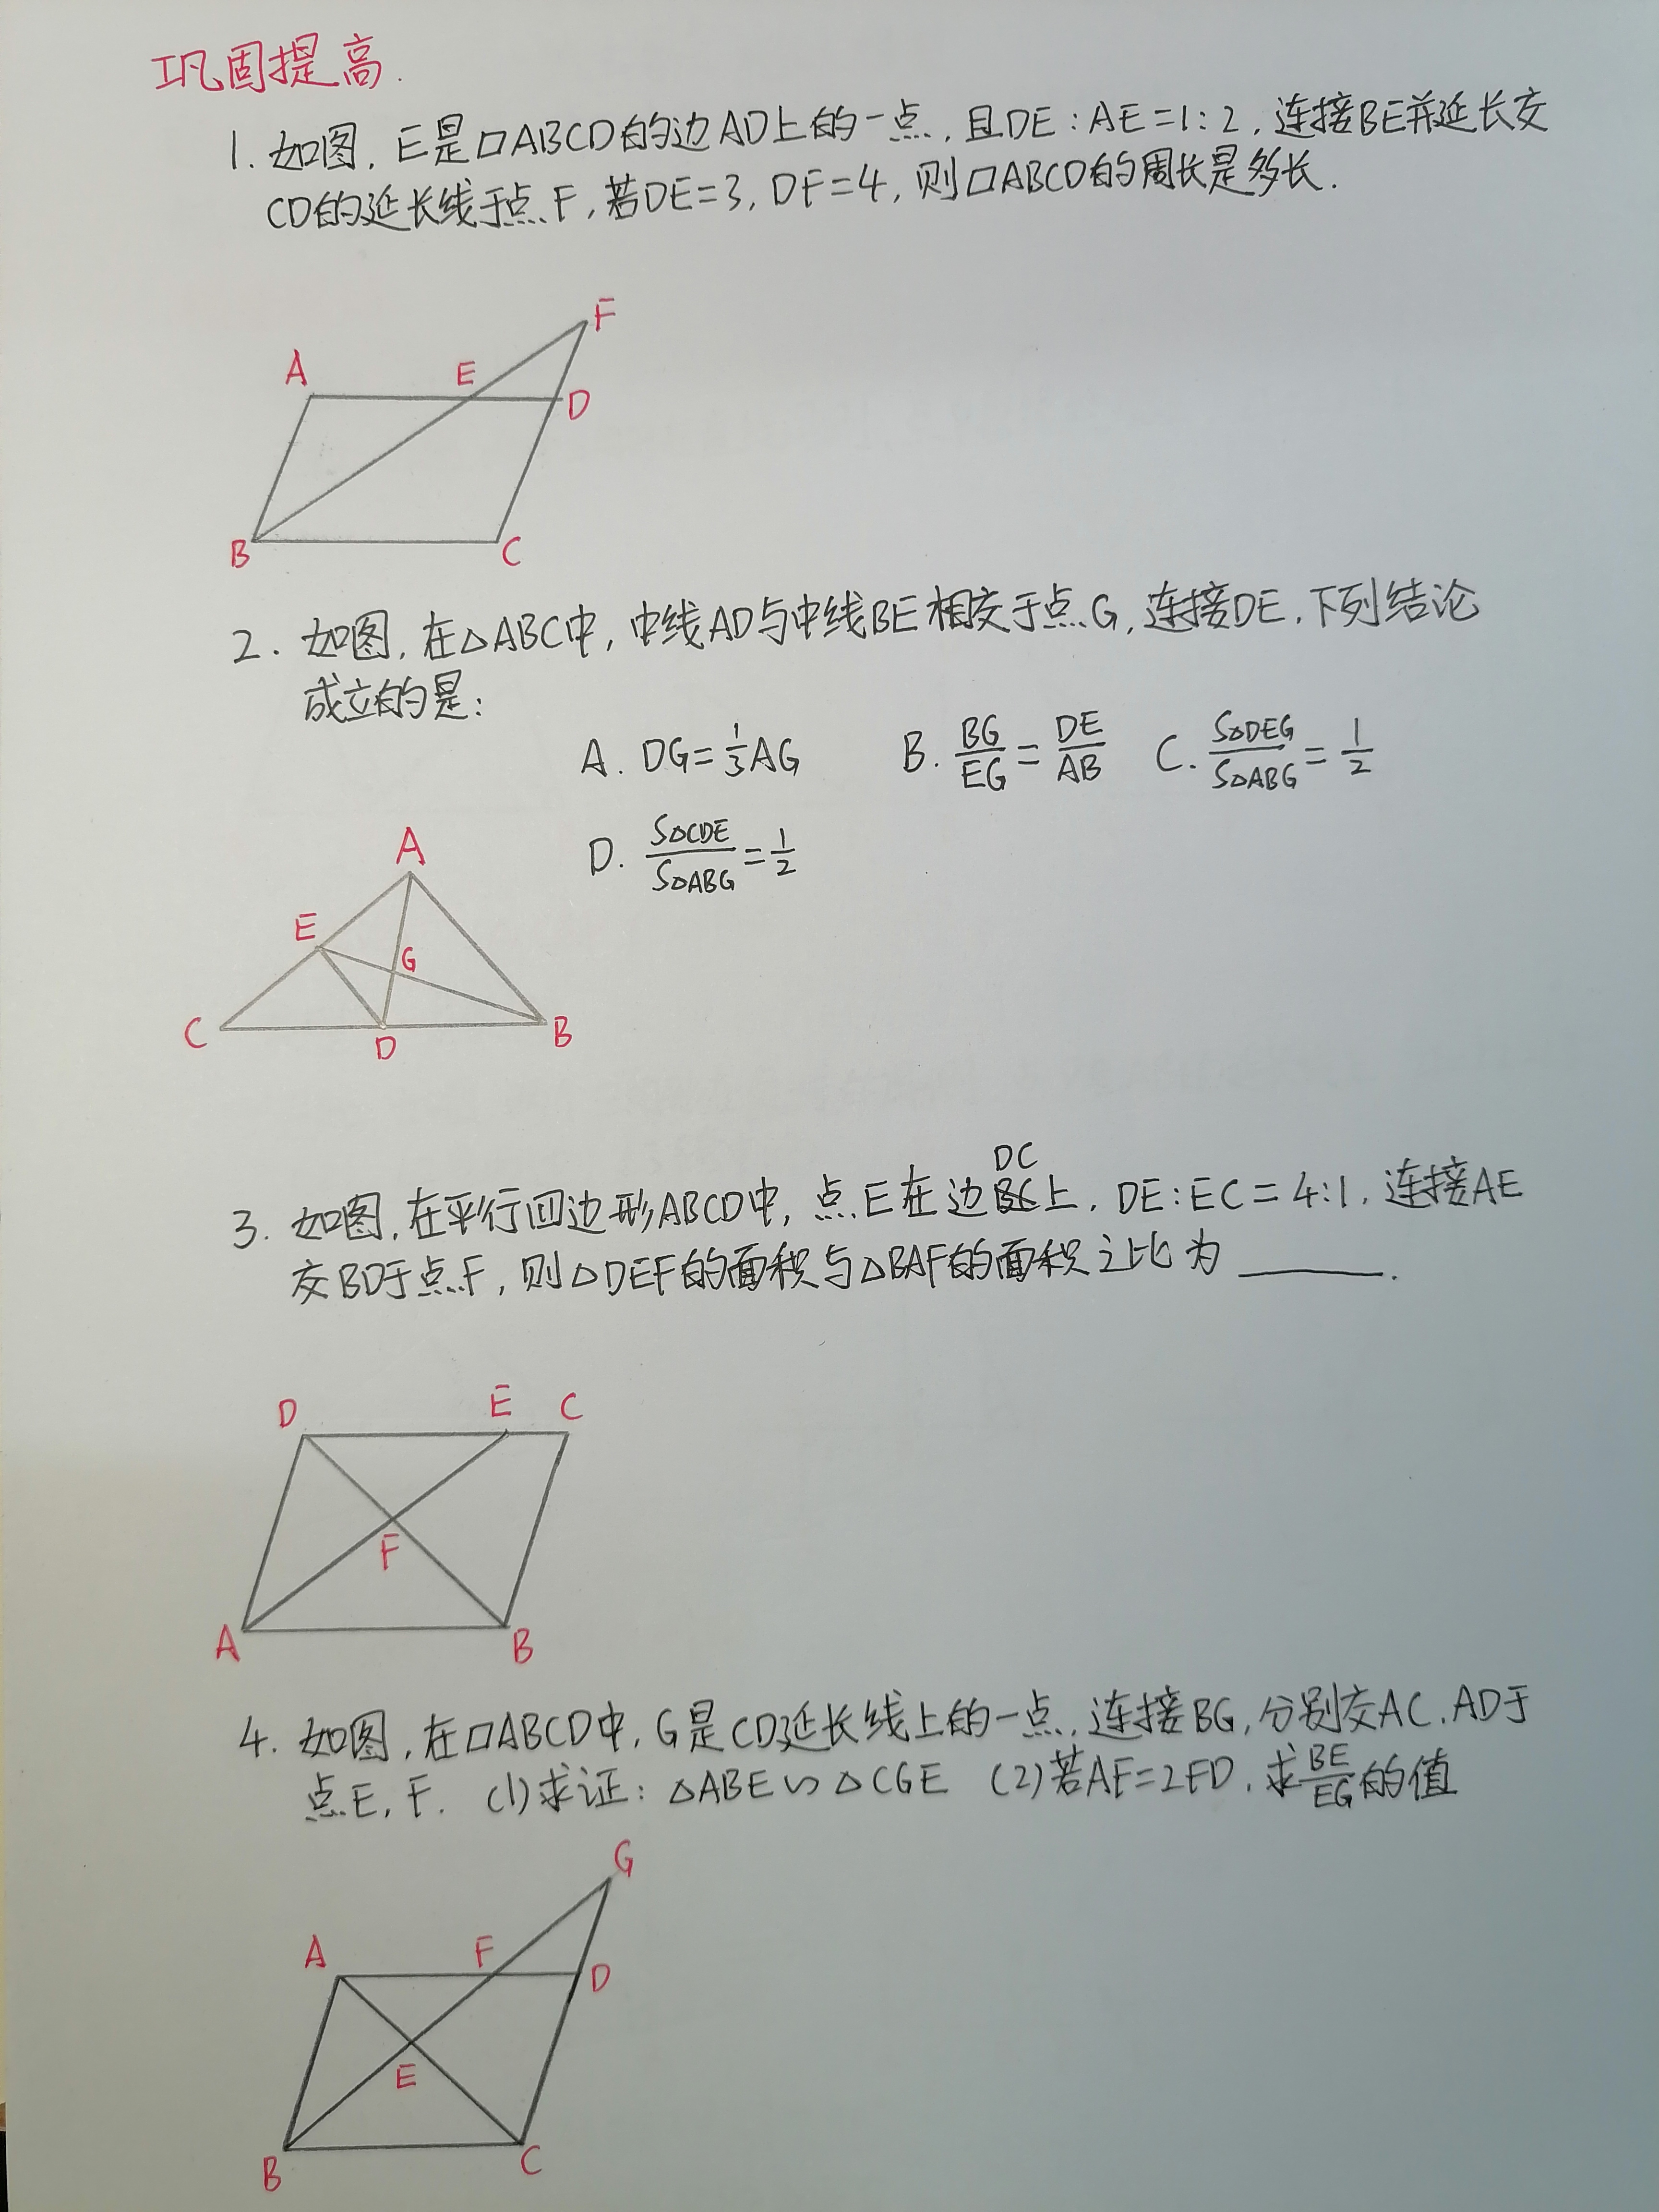 巩固提高.
1. 如图，E是▱ABCD的边AD上的一点，且DE:AE=1:2，连接BE并延长交
CD的延长线于点F，若DE=3，DF=4，则▱ABCD的周长是多长.
F
A
E
D
B
C
2. 如图，在△ABC中，中线AD与中线BE相交于点G，连接DE，下列结论
成立的是：
A. DG=1/3AG  B. BG/EG=DE/AB  C. S△DEG/S△ABG=1/2
D. S△CDE/S△ABG=1/2
A
E
G
C
D
B
DC
3. 如图，在平行四边形ABCD中，点E在边上，DE:EC=4:1，连接AE
交BD于点F，则△DEF的面积与△BAF的面积之比为______.
D
E
C
F
A
B
4. 如图，在▱ABCD中，G是CD延长线上的一点，连接BG，分别交AC、AD于
点E，F. (1)求证：△ABE∽△CGE (2)若AF=2FD，求BE/EG的值
G
A
F
D
E
B
C